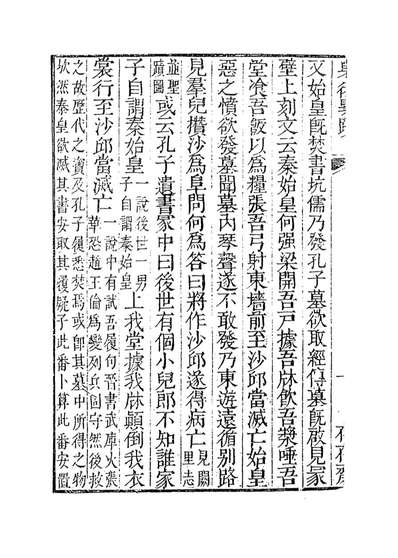 又始皇旣焚書坑儒乃發孔子墓欲取經傳墓旣啟見冢
壁上刻文云秦始皇何强梁開吾戸據吾牀飲吾漿唾吾
堂飡吾飯以爲糧張吾弓射東墻前至沙邱當滅亡始皇
惡之憤欲發墓聞墓內琴聲遂不敢發乃東遊遠循别路
見羣兒攢沙爲阜問何爲答曰將作沙邱遂得病亡見闕里志
並聖蹟圖或云孔子遺書冢中曰後世有個小兒郎不知誰家
子自謂秦始皇一說後世一男子自謂秦始皇上我堂據我牀顛倒我衣
裳行至沙邱當滅亡一說中有試吾履句晉書武庫火張華恐趙王倫爲變列兵固守然後救
之故歷代之寳及孔子履悉焚焉或卽其墓中所得之物
欤然秦皇欲滅其書安取其履疑子此番卜算此番安置